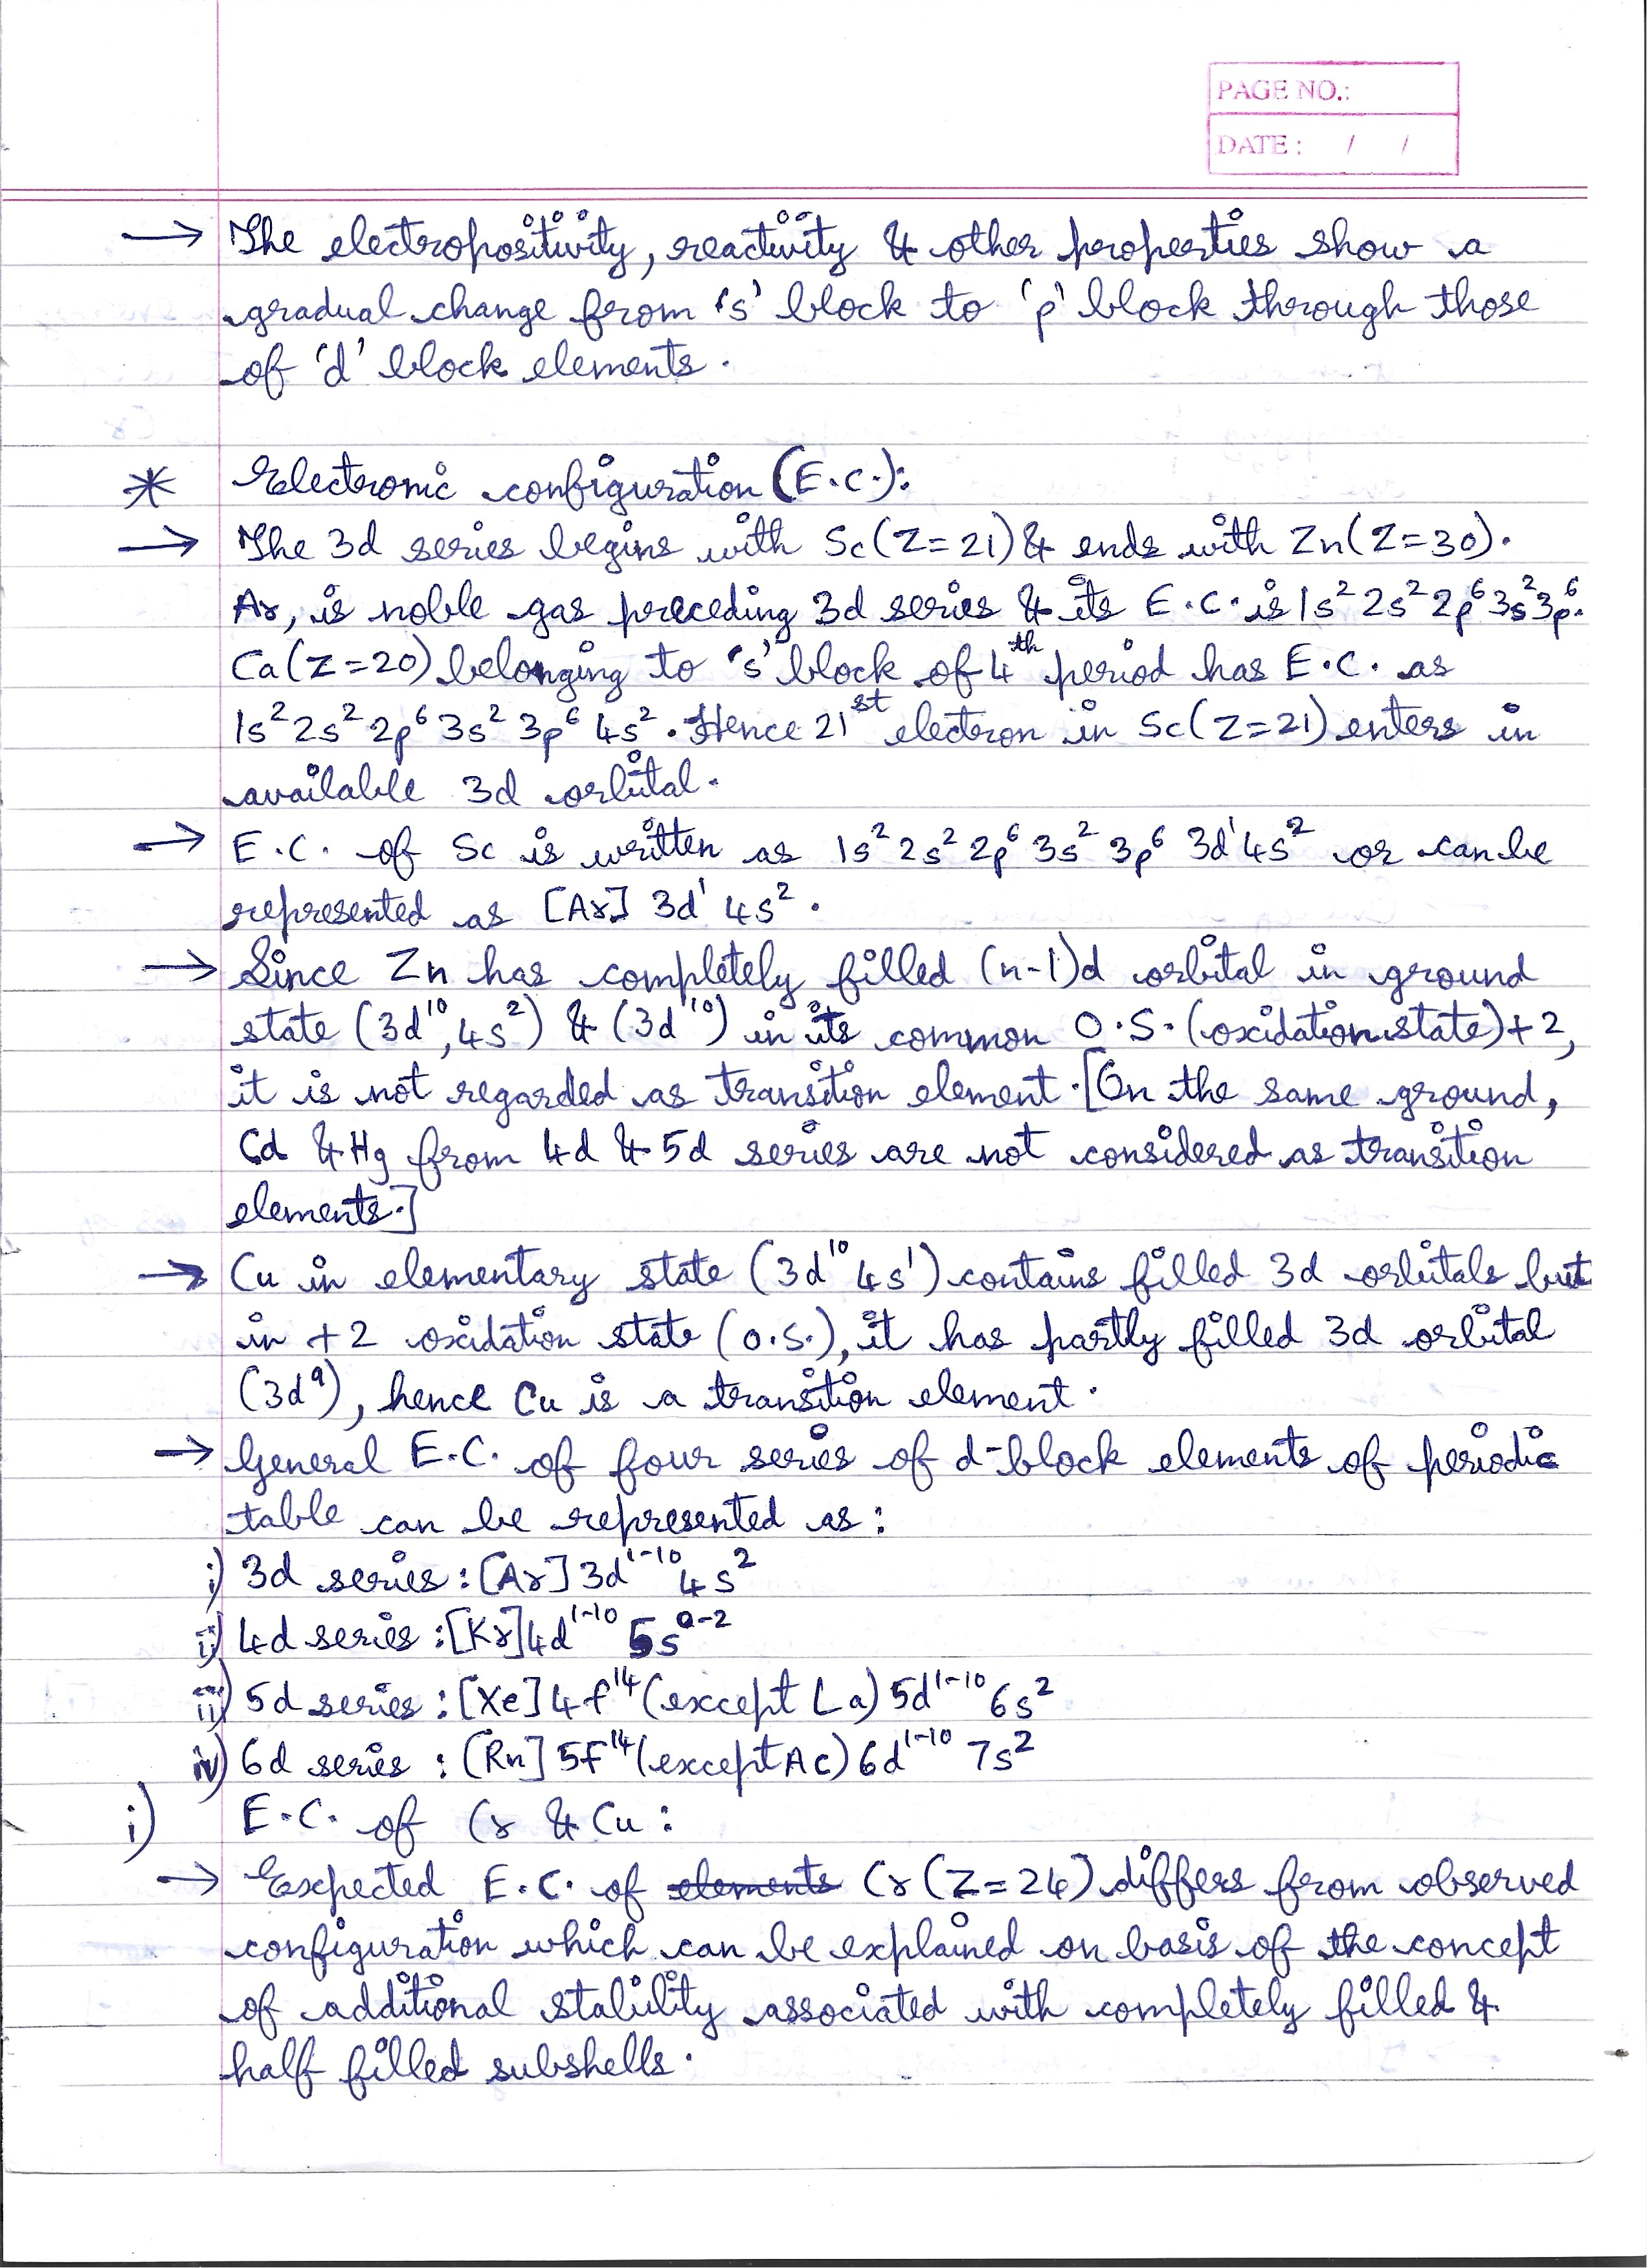 PAGE NO.:
DATE : / /
→ The electropositivity, reactivity & other properties show a
gradual change from 's' block to 'p' block through those
of 'd' block elements.
* Electronic configuration (E.C.):
→ The 3d series begins with Sc(Z=21) & ends with Zn(Z=30).
Ar, is noble gas preceding 3d series & its E.C. is 1s² 2s² 2p⁶ 3s² 3p⁶.
Ca(Z=20) belonging to 's' block of 4th period has E.C. as
1s² 2s² 2p⁶ 3s² 3p⁶ 4s². Hence 21st electron in Sc(Z=21) enters in
available 3d orbital.
→ E.C. of Sc is written as 1s² 2s² 2p⁶ 3s² 3p⁶ 3d¹ 4s² or can be
represented as [Ar] 3d¹ 4s².
→ Since Zn has completely filled (n-1)d orbital in ground
state (3d¹⁰, 4s²) & (3d¹⁰) in its common O.S. (oxidation state) +2,
it is not regarded as transition element. [On the same ground,
Cd & Hg from 4d & 5d series are not considered as transition
elements.]
→ Cu in elementary state (3d¹⁰ 4s¹) contains filled 3d orbitals but
in +2 oxidation state (O.S.), it has partly filled 3d orbital
(3d⁹), hence Cu is a transition element.
→ General E.C. of four series of d-block elements of periodic
table can be represented as:
i) 3d series : [Ar] 3d¹⁻¹⁰ 4s²
ii) 4d series : [Kr] 4d¹⁻¹⁰ 5s⁰⁻²
iii) 5d series : [Xe] 4f¹⁴ (except La) 5d¹⁻¹⁰ 6s²
iv) 6d series : [Rn] 5f¹⁴ (except Ac) 6d¹⁻¹⁰ 7s²
i) E.C. of Cr & Cu :
→ Expected E.C. of elements Cr (Z=24) differs from observed
configuration which can be explained on basis of the concept
of additional stability associated with completely filled &
half filled subshells.